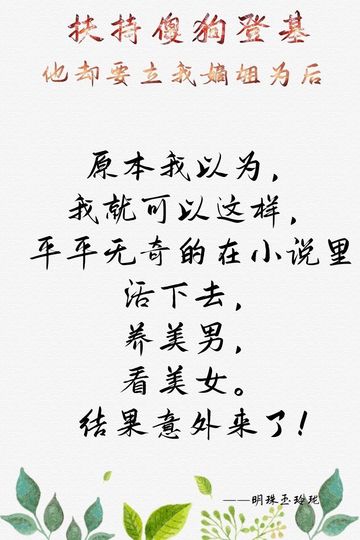 扶持傻狗登基
他却要立我嫡姐为后
原本我以为，
我就可以这样，
平平无奇的在小说里
活下去，
养美男，
看美女。
结果意外来了！
——明珠玉玲珑